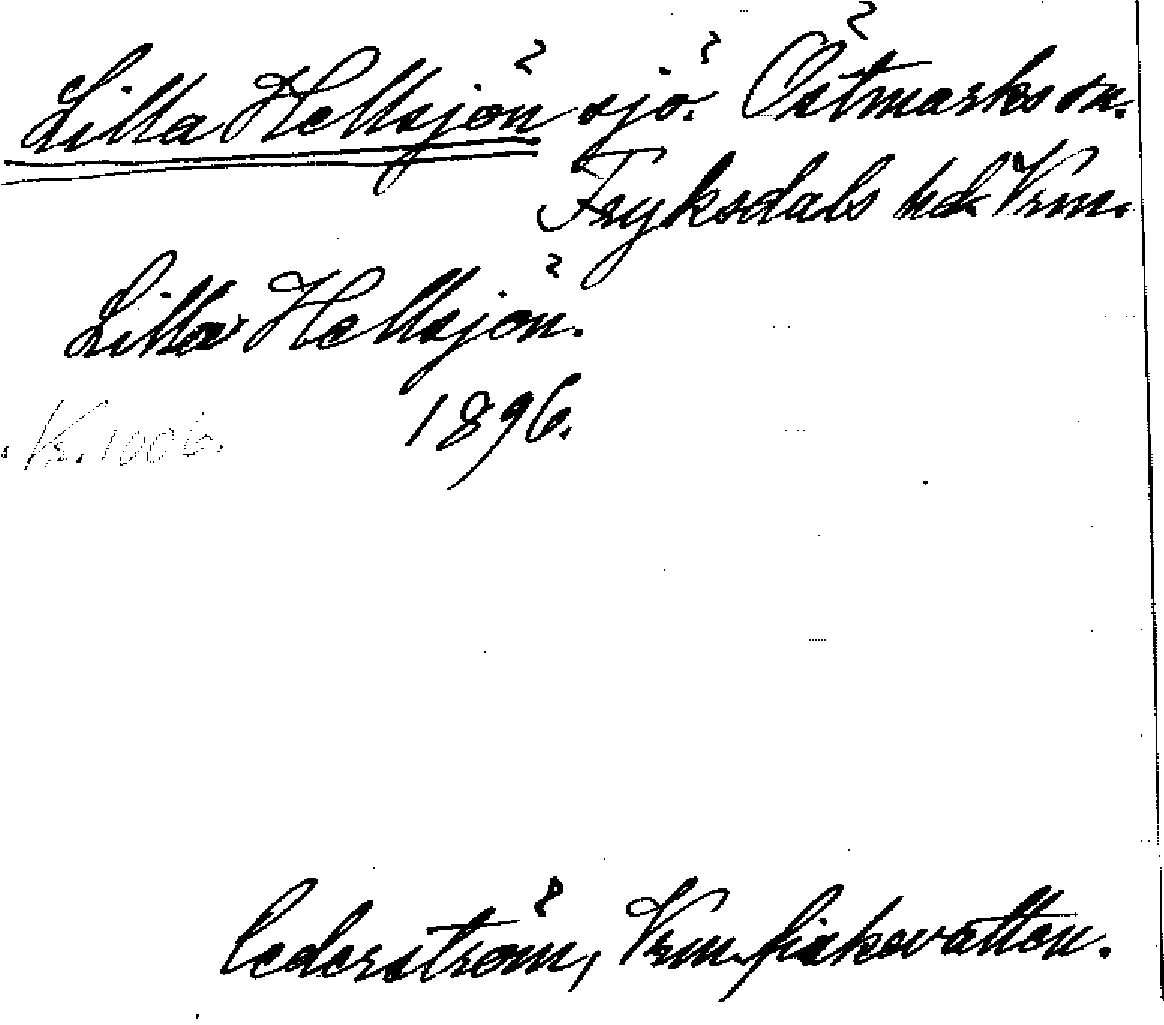 Lilla Hellsjön sjö. Östmarks sn.
Fryksdals hd. Vrm.
Lilla Hellsjön.
1896.
Cederström, Vrm. fiskevatten.